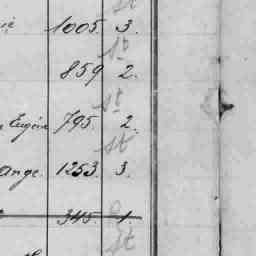 1005. 3.
st
859 2.
st
Eugène 795. 2.
st
ange. 1253. 3.
345. 1.
st